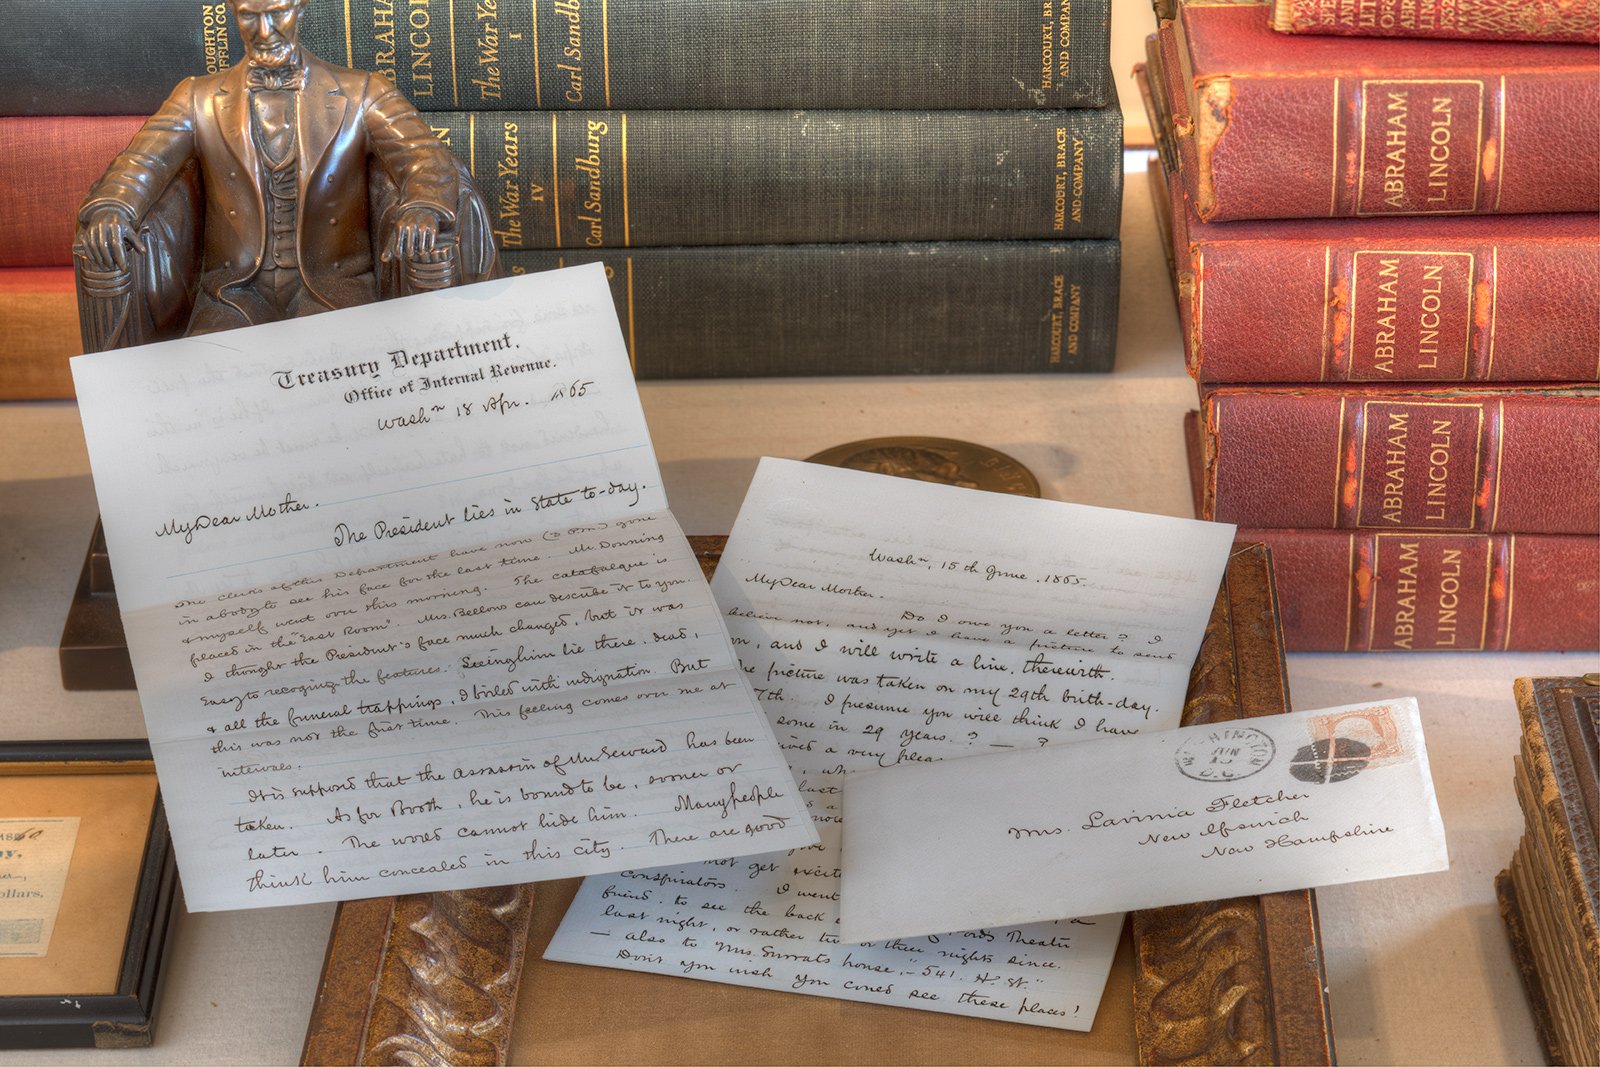 OUGHTON
IFFLIN CO.
ABRAHAM
LINCOLN
The War Years
I
Carl Sandburg
HARCOURT, BRACE
AND COMPANY
The War Years
IV
Carl Sandburg
HARCOURT, BRACE
AND COMPANY
HARCOURT, BRACE
AND COMPANY
ABRAHAM
LINCOLN
ABRAHAM
LINCOLN
ABRAHAM
LINCOLN
ABRAHAM
LINCOLN
Treasury Department,
Office of Internal Revenue.
Washn 18 Apr. 1865
My Dear Mother.
The President lies in State to-day.
The clerks of this Department have now (2 P.M.) gone
in a body to see his face for the last time. Mr. Donning
& myself went over this morning. The catafalque is
placed in the "East Room". Mrs. Bellows can describe it to you.
I thought the President's face much changed, but it was
easy to recognize the features. Seeing him lie there, dead,
& all the funeral trappings, I boiled with indignation. But
this was not the first time. This feeling comes over me at
intervals.
It is supposed that the assassin of Mr. Seward has been
taken. As for Booth, he is bound to be, sooner or
later. The world cannot hide him. Many people
think him concealed in this city. There are good
Washn, 15th June, 1865.
My Dear Mother.
Do I owe you a letter? I
believe not, and yet I have a picture to send
and I will write a line, therewith.
picture was taken on my 29th birth-day.
7th. I presume you will think I have
some in 29 years.? — ?
a very
last
not get
conspirators. I went
friend, to see the back
Fords Theatre
last night, or rather two or three nights since.
— also to "Mrs. Surrats house,"– 541. H. St."
Don't you wish you could see these places!
WASHINGTON
JUN
15
D.C.
Mrs. Lavinia Fletcher
New Ipswich
New Hampshire
1860
ollars.